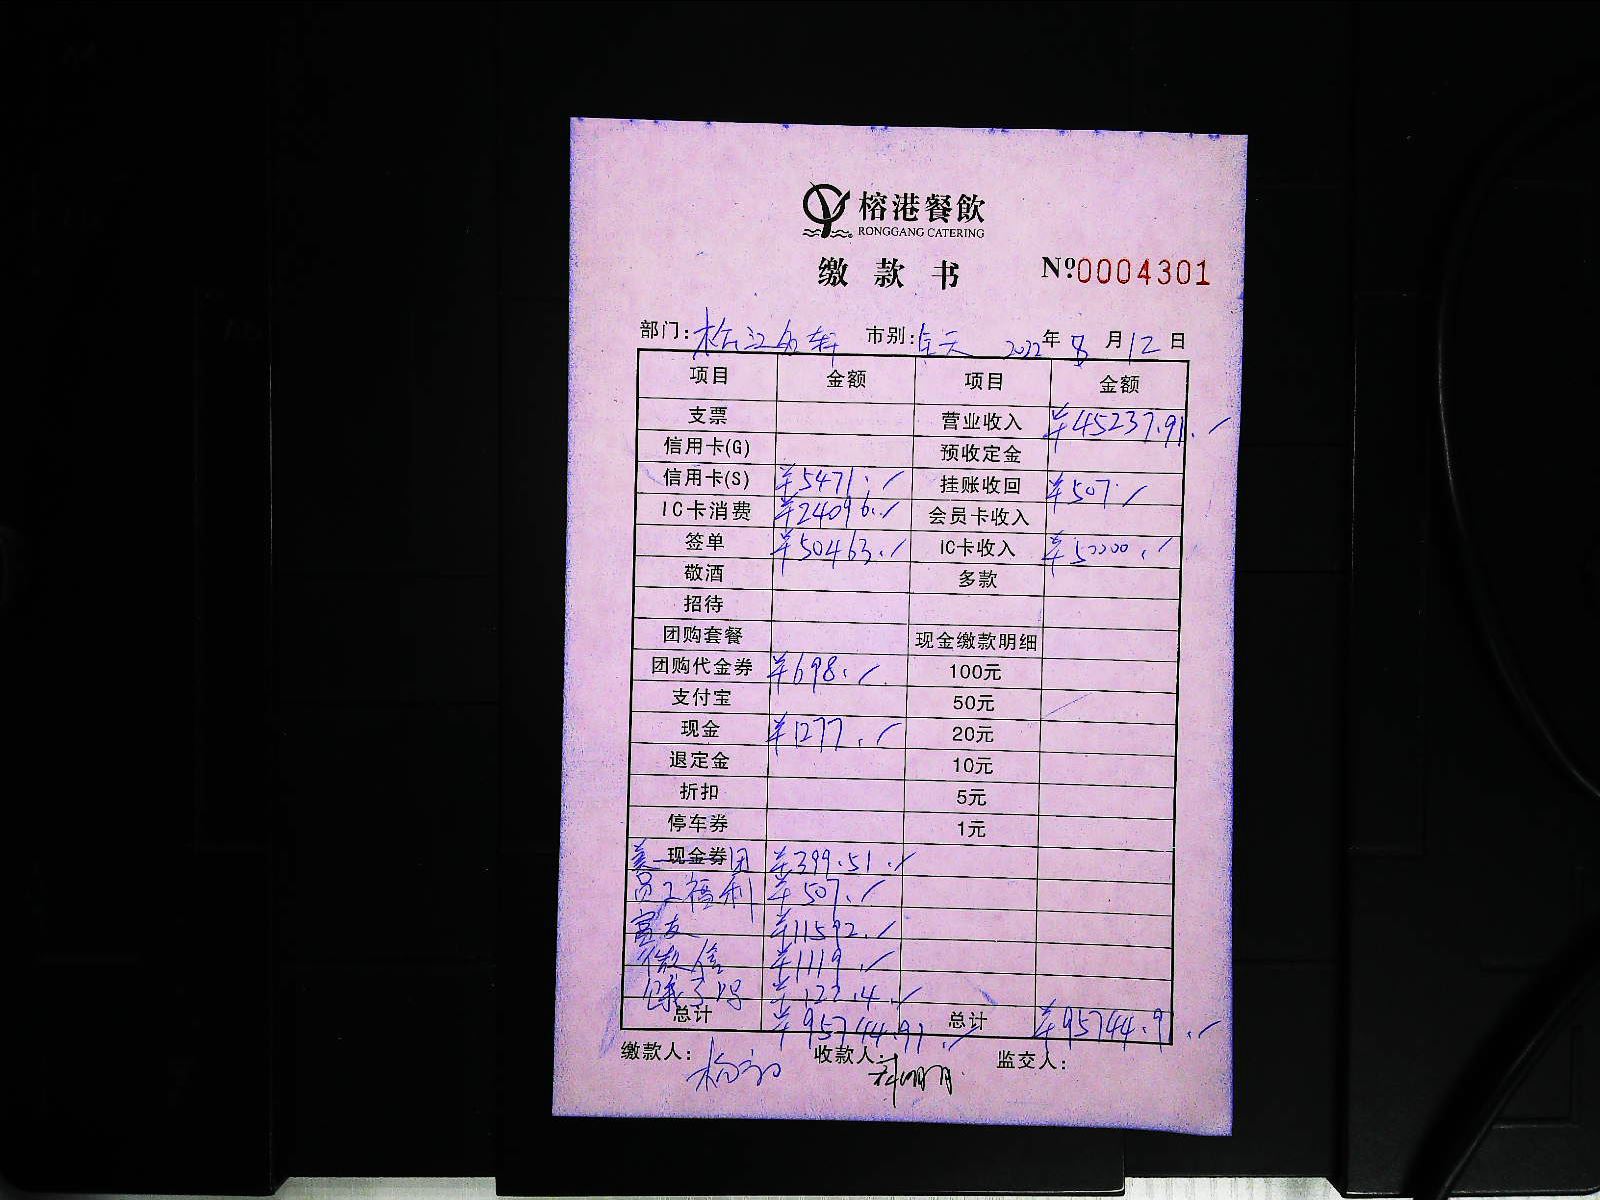 榕港餐飲
RONGGANG CATERING
缴款书 №0004301
部门: 松江名轩 市别: 全天 2022年8月12日
项目 金额 项目 金额
支票 营业收入 ¥45237.91
信用卡(G) 预收定金
信用卡(S) ¥5471. 挂账收回 ¥507.
IC卡消费 ¥24096. 会员卡收入
签单 ¥50463. IC卡收入 ¥50000.
敬酒 多款
招待
团购套餐 现金缴款明细
团购代金券 ¥698. 100元
支付宝 50元
现金 ¥1277. 20元
退定金 10元
折扣 5元
停车券 1元
现金券 美团 ¥399.51
员工福利 ¥507.
富友 ¥11592.
微信 ¥1119.
饿了吗 ¥122.4
总计 ¥95744.91 总计 ¥95744.91
缴款人: 收款人: 监交人: